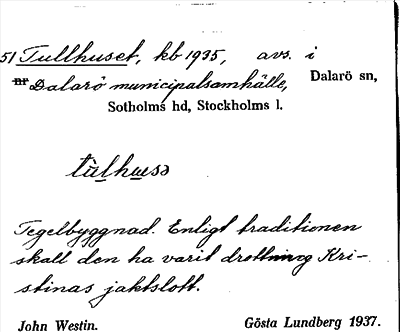 51 Tullhuset, kb 1935, avs. i
Dalarö municipalsamhälle, Dalarö sn,
Sotholms hd, Stockholms l.
tùlhusə
Tegelbyggnad. Enligt traditionen
skall den ha varit drottning Kri-
stinas jaktslott.
John Westin. Gösta Lundberg 1937.